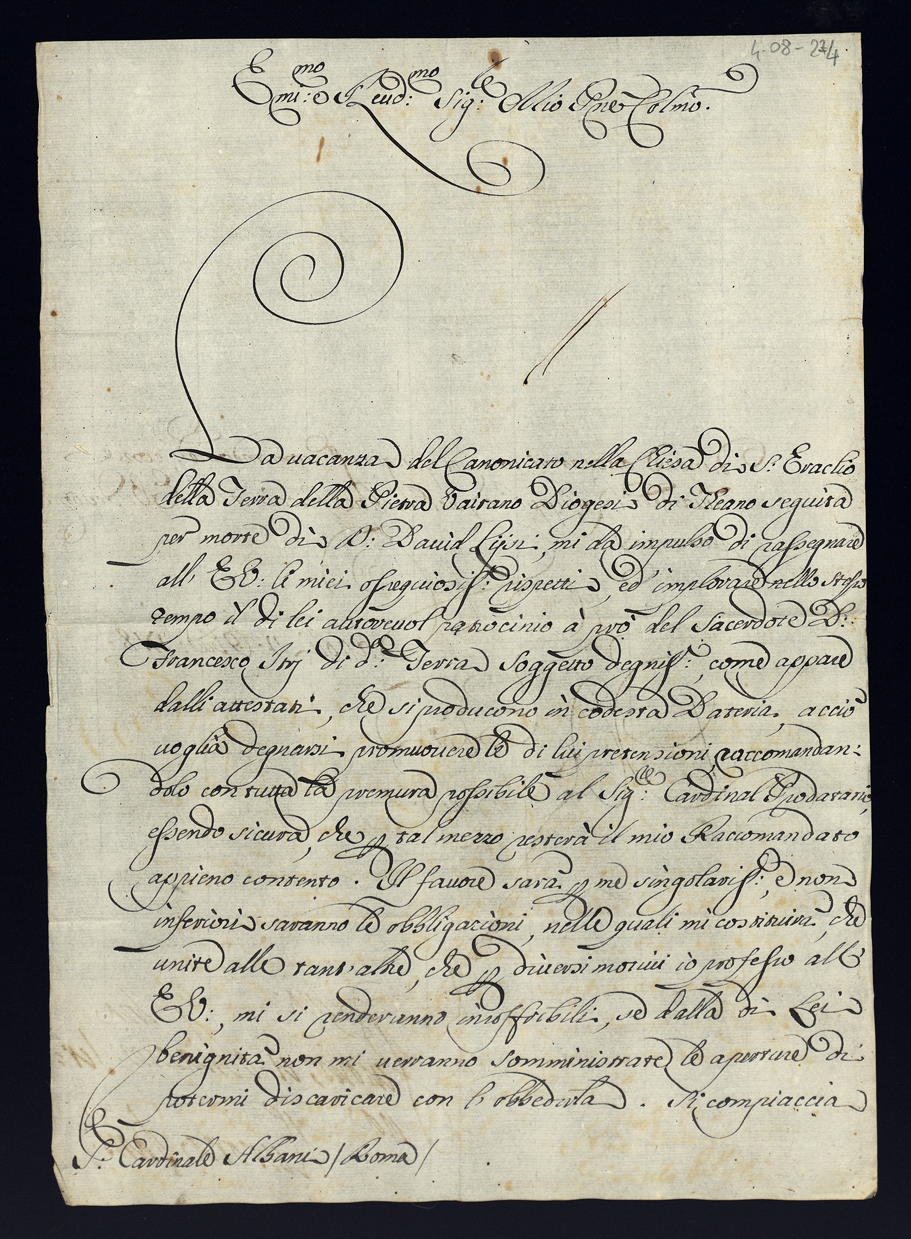 4-08-224
E.mo mi: e Reud:mo Sig:re Mio Pne Colmo.
La uacanza del Canonicato nella Chiesa di S. Eraclio
della Terra della Pietra Vairano Diogesi di Theano seguita
per morte di D: David, mi dà impulso di rassegnare
all' E.V: li miei ossequiosis.mi rispetti, ed' implorare nello stesso
tempo il di lei autoreuol patrocinio à prò del Sacerdote D:
Francesco Itri di d.a Terra soggetto degnis.o, come appare
dalli attestati, che si producono in codesta Dateria, acciò
uoglia degnarsi promuouere le di lui pretensioni, raccomandan:
dolo con tutta la premura possibile al Sig:re Cardinal Prodatario,
essendo sicura, che p tal mezzo resterà il mio Raccomandato
appieno contento. Il fauore sarà p me singolaris.o, e non
inferiori saranno le obbligazioni, nelle quali mi costituirà, che
unite alle tant'altre, che p diuersi motiui io professo all'
E.V:, mi si renderanno insoffribili, se dalla di Lei
benignità non mi uerranno somministrate le aperture di
potermi discaricare con l'obbedirla. Si compiaccia
S.r Cardinale Albani /Roma/